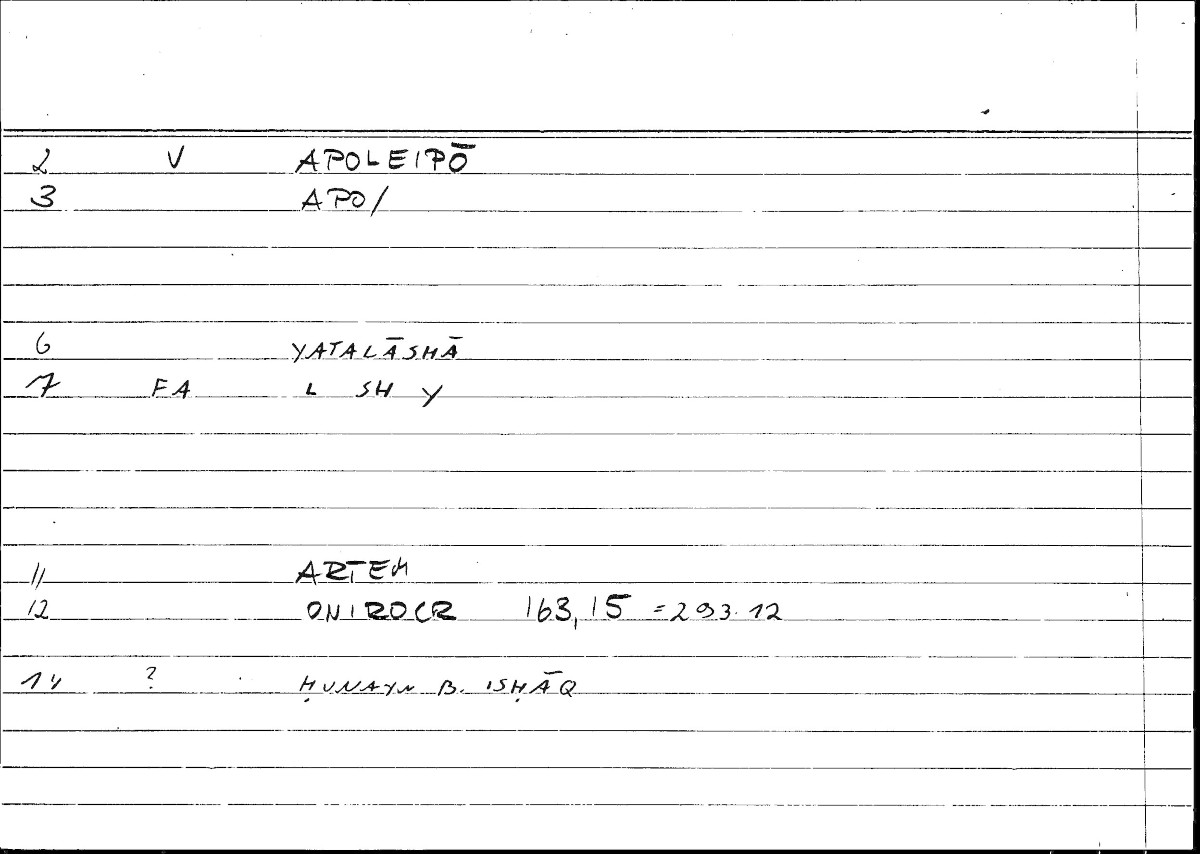 2 V APOLEIPŌ
3 APO/
6 YATALĀSHĀ
7 FA L SH Y
11 ARTEM
12 ONIROCR 163,15 =293.12
14 ? ḤUNAYN B. ISḤĀQ